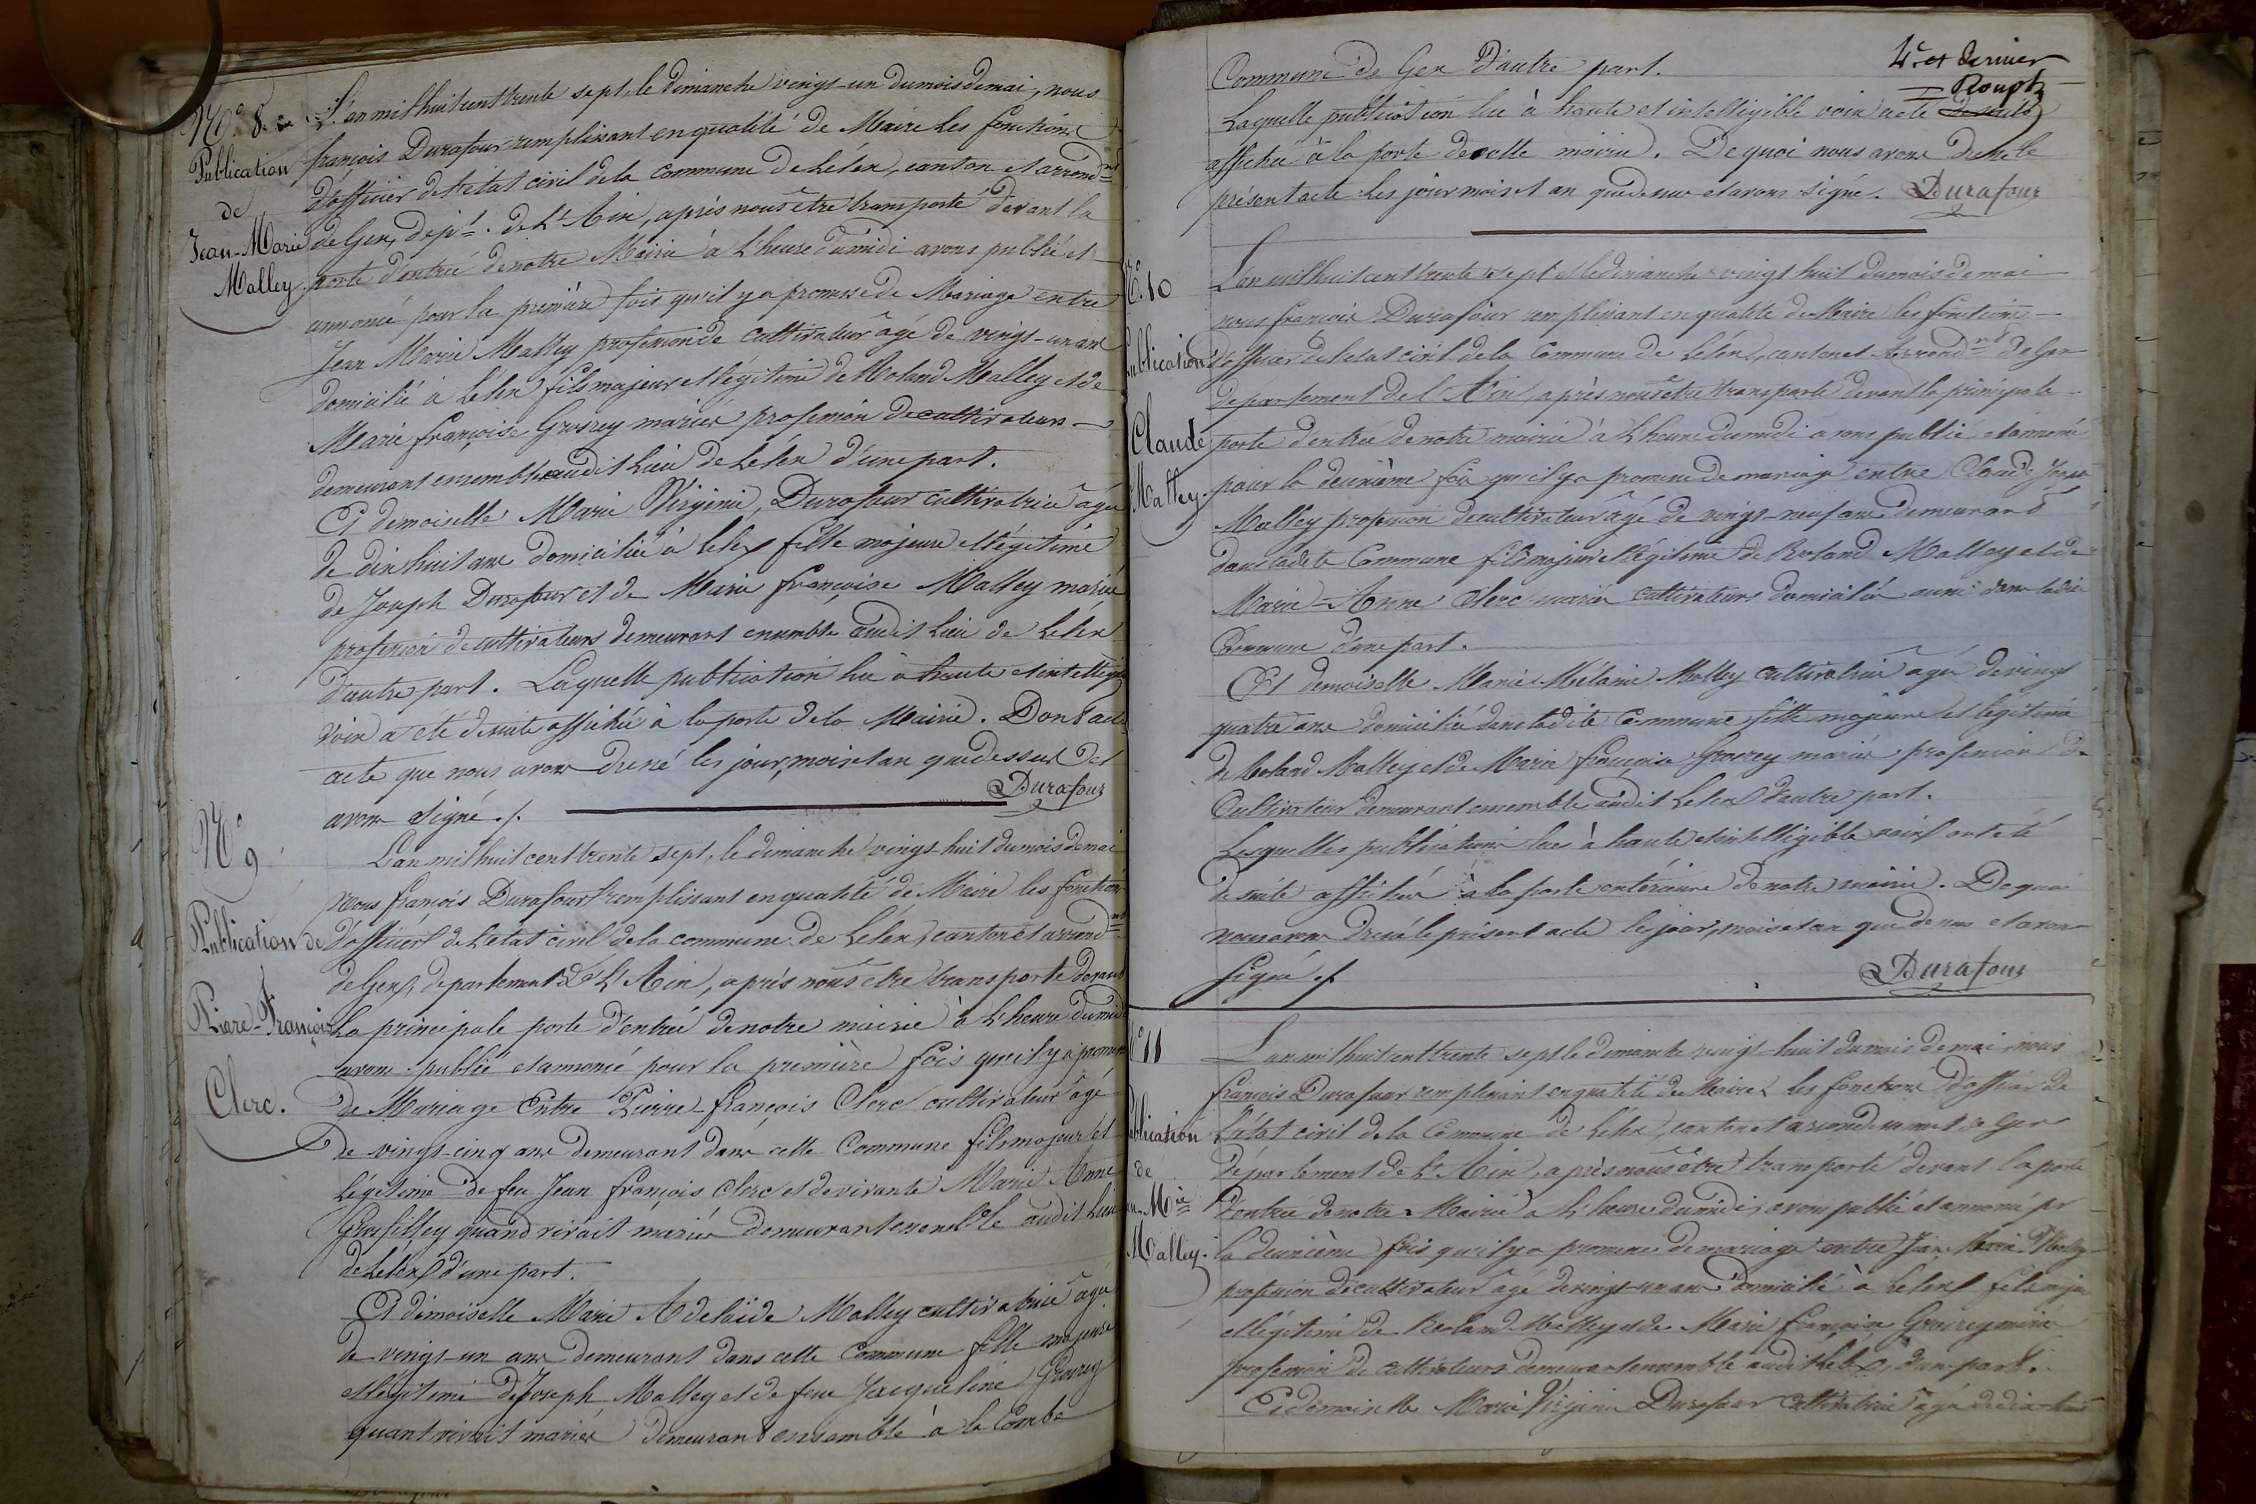 N.º 8.
Publication
de
Jean-Marie
Malley.
L'an mil huit cent trente sept, le dimanche vingt-un du mois de mai, nous
françois Durafour remplissant en qualité de Maire les fonctions
d'officier de l'état civil de la commune de Lélex, canton et arrond.nt
de Gex, dép.t de L'Ain, après nous être transporté devant la
porte d'entrée de notre Mairie à L'heure du midi avons publié et
annoncé pour la première fois qu'il y a promesse de Mariage entre
Jean Marie Malley profession de cultivateur âgé de vingt-un ans
domicilié à Lélex fils majeur et légitime de Roland Malley et de
Marie françoise Grosrey mariés profession de cultivateurs
demeurant ensemble audit Lieu de Lélex d'une part.
Et demoiselle Marie Virginie Durafour cultivatrice âgée
de dix huit ans domiciliée à Lélex fille majeure et légitime
de Joseph Durafour et de Marie françoise Malley mariés
profession de cultivateurs demeurant ensemble audit Lieu de Lélex
d'autre part. Laquelle publication lue à haute et intelligi
voix a été de suite affichée à la porte de la Mairie. Dont acte
acte que nous avons dressé les jour, mois et an que dessus et
avons signé ./.
Durafour
N.º 9
Publication de
Piere-François
Clerc.
L'an mil huit cent trente sept, le dimanche vingt huit du mois de mai
nous françois Durafour remplissant en qualité de Maire les fonctions
d'officier de L'état civil de la commune de Lélex, canton et arrond.nt
de Gex, département de L'Ain, après nous être transporté devant
La principale porte d'entrée de notre mairie à L'heure du midi
avons publié et annoncé pour la première fois qu'il y a promesse
de Mariage Entre Pierre-françois Clerc cultivateur âgé
de vingt-cinq ans demeurant dans cette Commune fils majeur et
Légitime de feu Jean françois Clerc et de vivante Marie Anne
Grosfilley quand vivait mariés demeurant ensemble audit Lieu
de Lélex d'une part.
Et demoiselle Marie Adelaïde Malley cultivatrice âgée
de vingt-un ans demeurant dans cette Commune fille majeure
et légitime de Joseph Malley et de feue Jacqueline Grosrey
quant vivait mariés demeurant ensemble à la Combe
4.e et dernier
Rouph
Commune de Gex d'autre part.
Laquelle publication lue à haute et intelligible voix a été de suite
affichée à la porte de cette mairie. De quoi nous avons dressé le
présent acte les jour mois et an que dessus et avons signé. Durafour
N.º 10
Publication
Claude
Malley.
L'an mil huit cent trente sept et le dimanche vingt huit du mois de mai
nous françois Durafour remplissant en qualité de Maire les fonctions
d'officier de l'état civil de la Commune de Lélex, canton et Arrond.nt de Gex
Département de L'Ain, après nous être transporté devant la principale
porte d'entrée de notre mairie à L'heure du midi avons publié et annoncé
pour la deuxième fois qu'il y a promesse de mariage entre Claude Joseph
Malley profession de cultivateur âgé de vingt-neuf ans demeurant
dans ladite Commune fils majeur et légitime de Roland Malley et de
Marie-Anne Clerc mariés cultivateurs domiciliés aussi dans ladite
Commune d'une part.
Et demoiselle Marie Mélanie Malley cultivatrice âgée de vingt
quatre ans domiciliée dans ladite Commune fille majeure et légitime
de Roland Malley et de Marie françoise Grosrey mariés profession de
Cultivateur demeurant ensemble audit Lélex d'autre part.
Lesquelles publications lues à haute et intelligible voix ont été
de suite affichées à la porte extérieure de notre mairie. De quoi
nous avons dressé le présent acte les jour, mois et an que dessus et avons
signé ./.
Durafour
N.º 11
Publication
de
Jean-M.ie
Malley.
L'an mil huit cent trente sept le dimanche vingt-huit du mois de mai, nous
françois Durafour remplissant en qualité de Maire les fonctions d'officier de
L'état civil de la Commune de Lélex, canton et arrondissement de Gex
Département de L'Ain, après nous être transporté devant la porte
d'entrée de notre Mairie à L'heure du midi, avons publié et annoncé pr
la deuxième fois qu'il y a promesse de mariage entre Jean Marie Malley
profession de cultivateur âgé de vingt-un ans domicilié à Lélex fils majeur
et légitime de Roland Malley et de Marie françoise Grosrey mariés
profession de cultivateurs demeurant ensemble audit Lélex, d'une part.
Et demoiselle Marie Virginie Durafour cultivatrice âgée de dix-huit